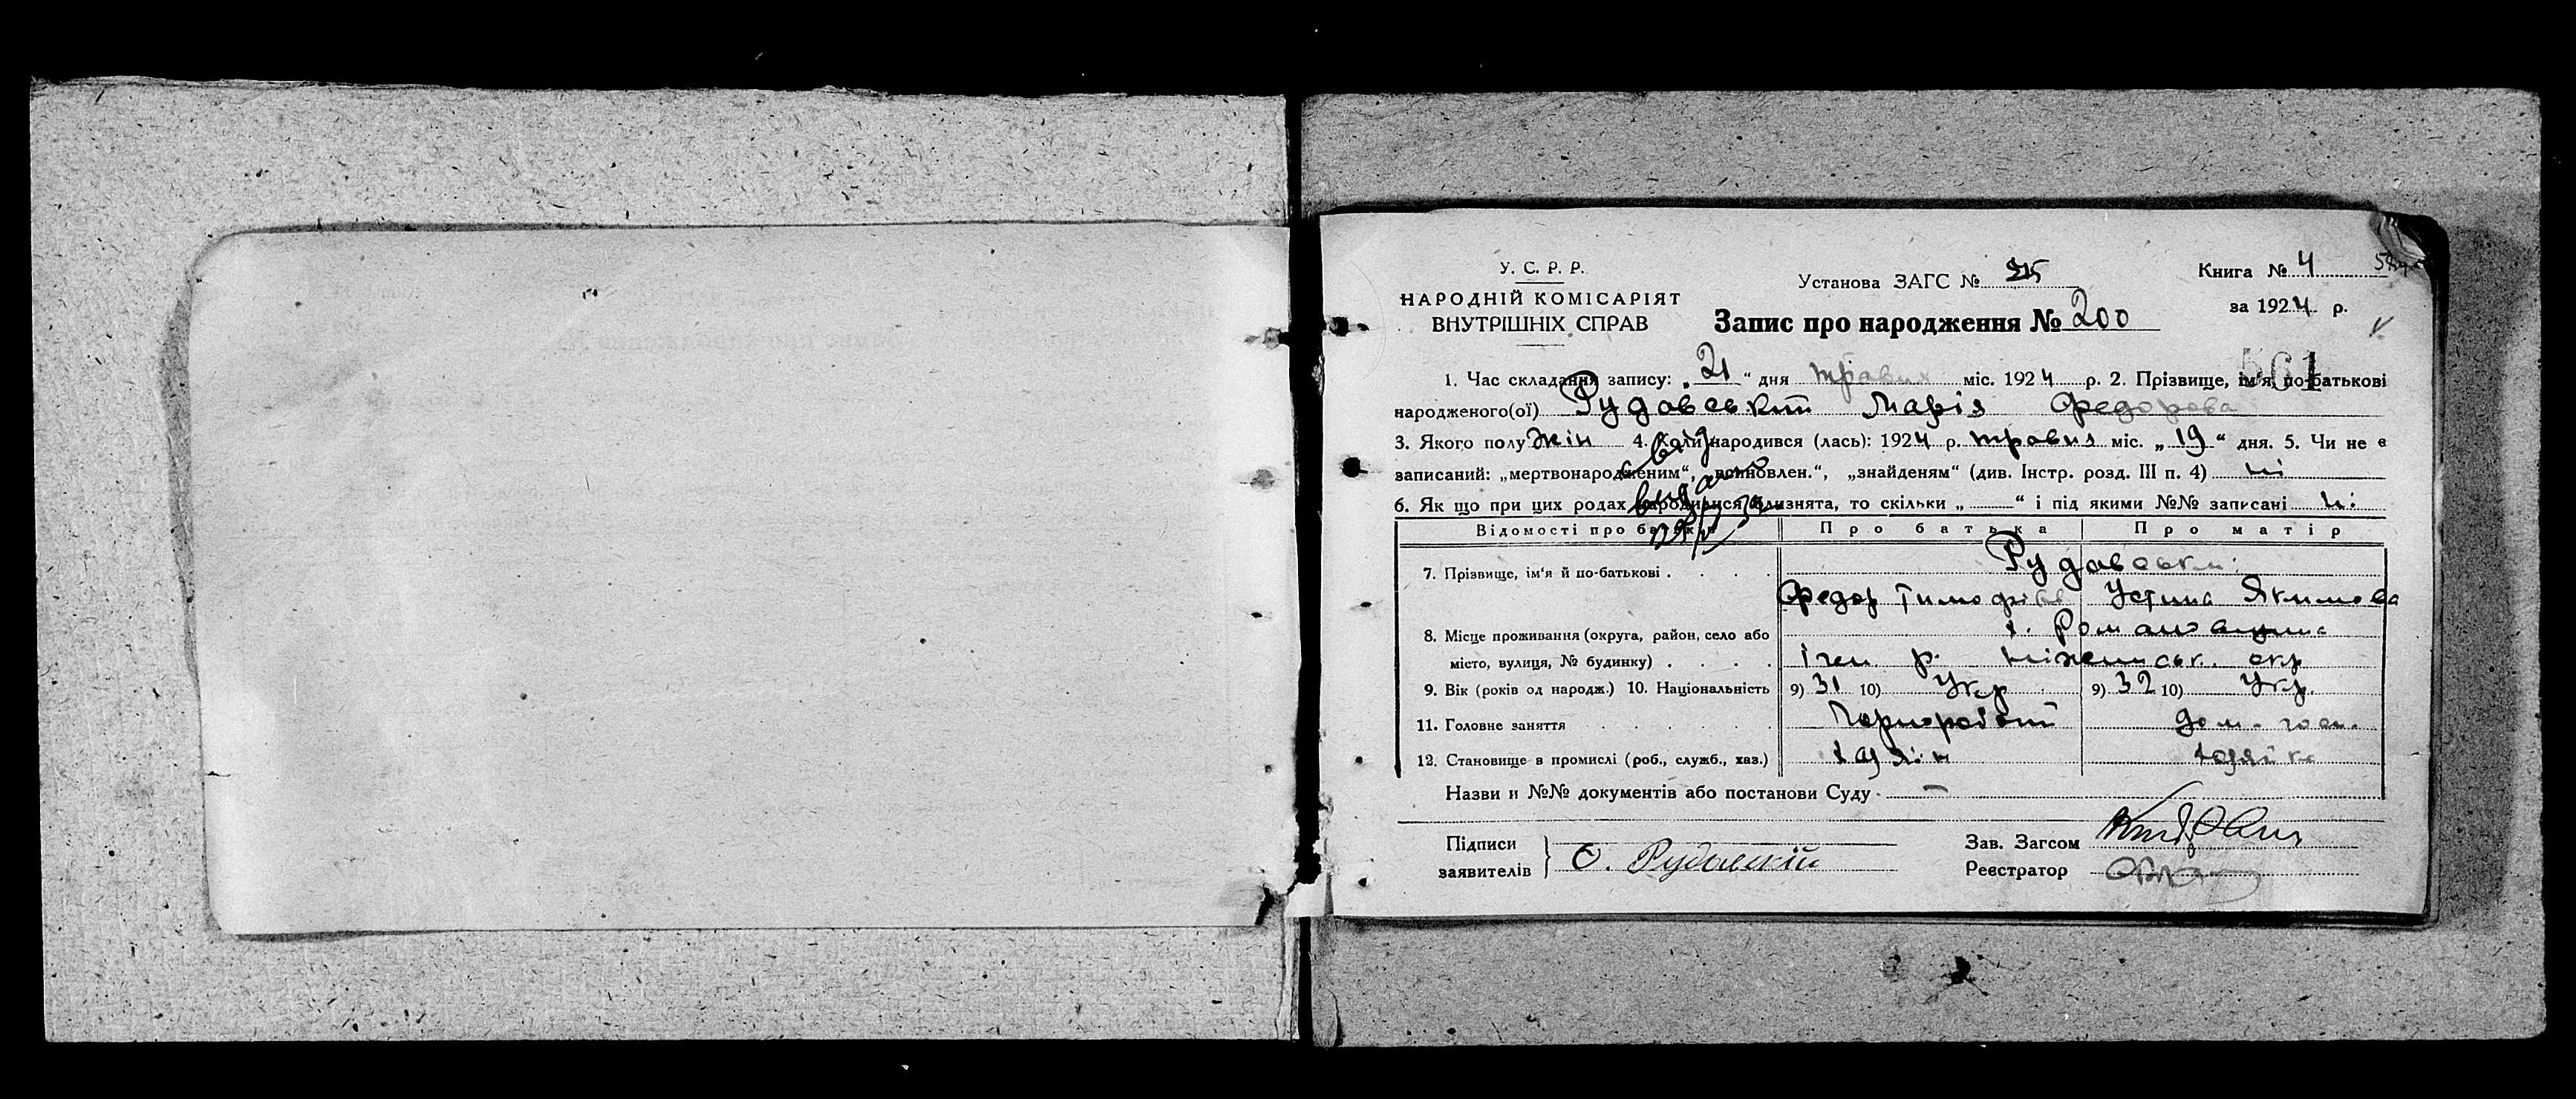 У. С. Р. Р.
НАРОДНІЙ КОМІСАРІЯТ
ВНУТРІШНІХ СПРАВ
Установа ЗАГС №
Книга № 4
за 1924 р.
Запис про народження № 200
561
1. Час складання запису: „21“ дня травня міс. 1924 р. 2. Прізвище, ім'я, по-батькові
народженого(ої) Рудавський Марія Федорова
3. Якого полу жін 4. Коли народився (лась): 1924 р. травня міс. „19“ дня. 5. Чи не є
записаний: „мертвонародженим“, „всиновлен.“, „знайденям“ (див. Інстр. розд. III п. 4) ні
6. Як що при цих родах народилися близнята, то скільки „ “ і під якими №№ записані ні
Відомості про батьків Про батька Про матір
7. Прізвище, ім'я й по-батькові . . . . Рудавські
Федор Тимофіїв Устина Якимова
8. Місце проживання (округа, район, село або х. Романовщина
місто, вулиця, № будинку) . . . . Ічен р. Ніженськ. окр
9. Вік (років од народж.) 10. Національність 9) 31 10) Укр 9) 32 10) Укр.
11. Головне заняття . . . . . Чорнороб дом. гос.
12. Становище в промислі (роб., служб., хаз.) хазяїн хазяйка
Назви и №№ документів або постанови Суду -
Підписи
заявителів } Ѳ. Рудавскій
Зав. Загсом
Реєстратор